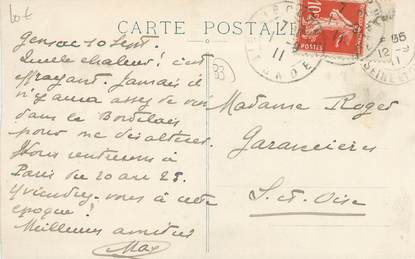 lot
CARTE POSTALE
Gensac 10 Sept.
Quelle chaleur! c'est
effrayant. Jamais il
n'y aura assez de vin
dans le Bordelais
pour me désaltérer.
Nous rentrerons à
Paris du 20 au 25.
Y viendrez-vous à cette
époque?
Meilleures amitiés
Max
33
10
POSTES
11
GIRONDE
12-9
11
Madame Roger
Garancières
S. et. Oise